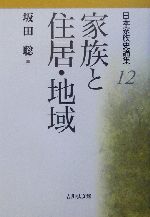 日本家族史論集
12
家族と
住居・地域
坂田 聡
編
吉川弘文館